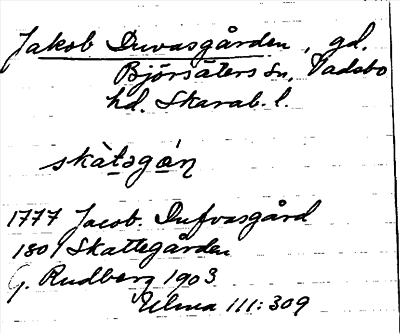 Jakob Duvasgården, gd.
Björsäters sn, Vadsbo
hd. Skarab. l.
skàtəgán
1777 Jacob Dufvasgård
1801 Skattegården
G. Rudberg 1903
Ulma 111:309